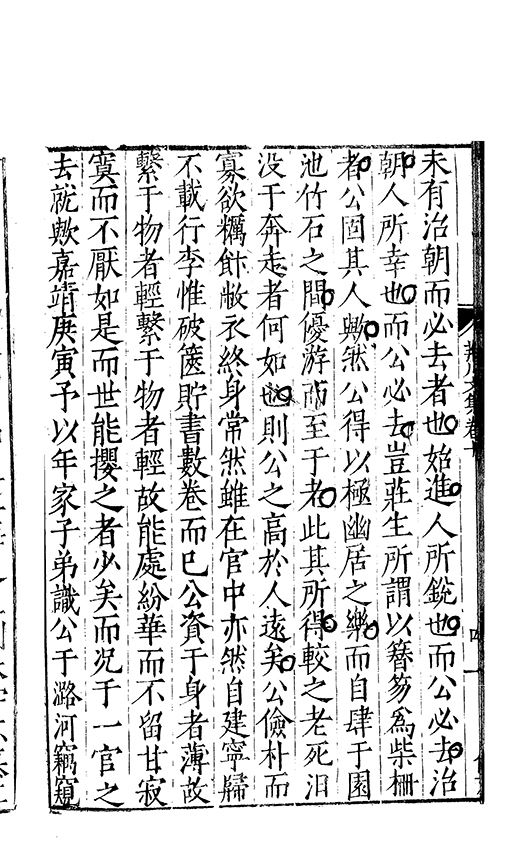 未有治朝而必去者也始進人所銳也而公必去治
朝人所幸也而公必去豈莊生所謂以簪笏爲柴柵
者公固其人歟然公得以極幽居之樂而自肆于園
池竹石之間優游而至于老此其所得較之老死汨
没于奔走者何如也則公之高於人遠矣公儉朴而
寡欲糲飰敝衣終身常然雖在官中亦然自建寧歸
不載行李惟破篋貯書數卷而已公資于身者薄故
繫于物者輕繫于物者輕故能處紛華而不留甘寂
寞而不厭如是而世能攖之者少矣而况于一官之
去就歟嘉靖庚寅予以年家子弟識公于潞河竊窺
荆川文集卷十